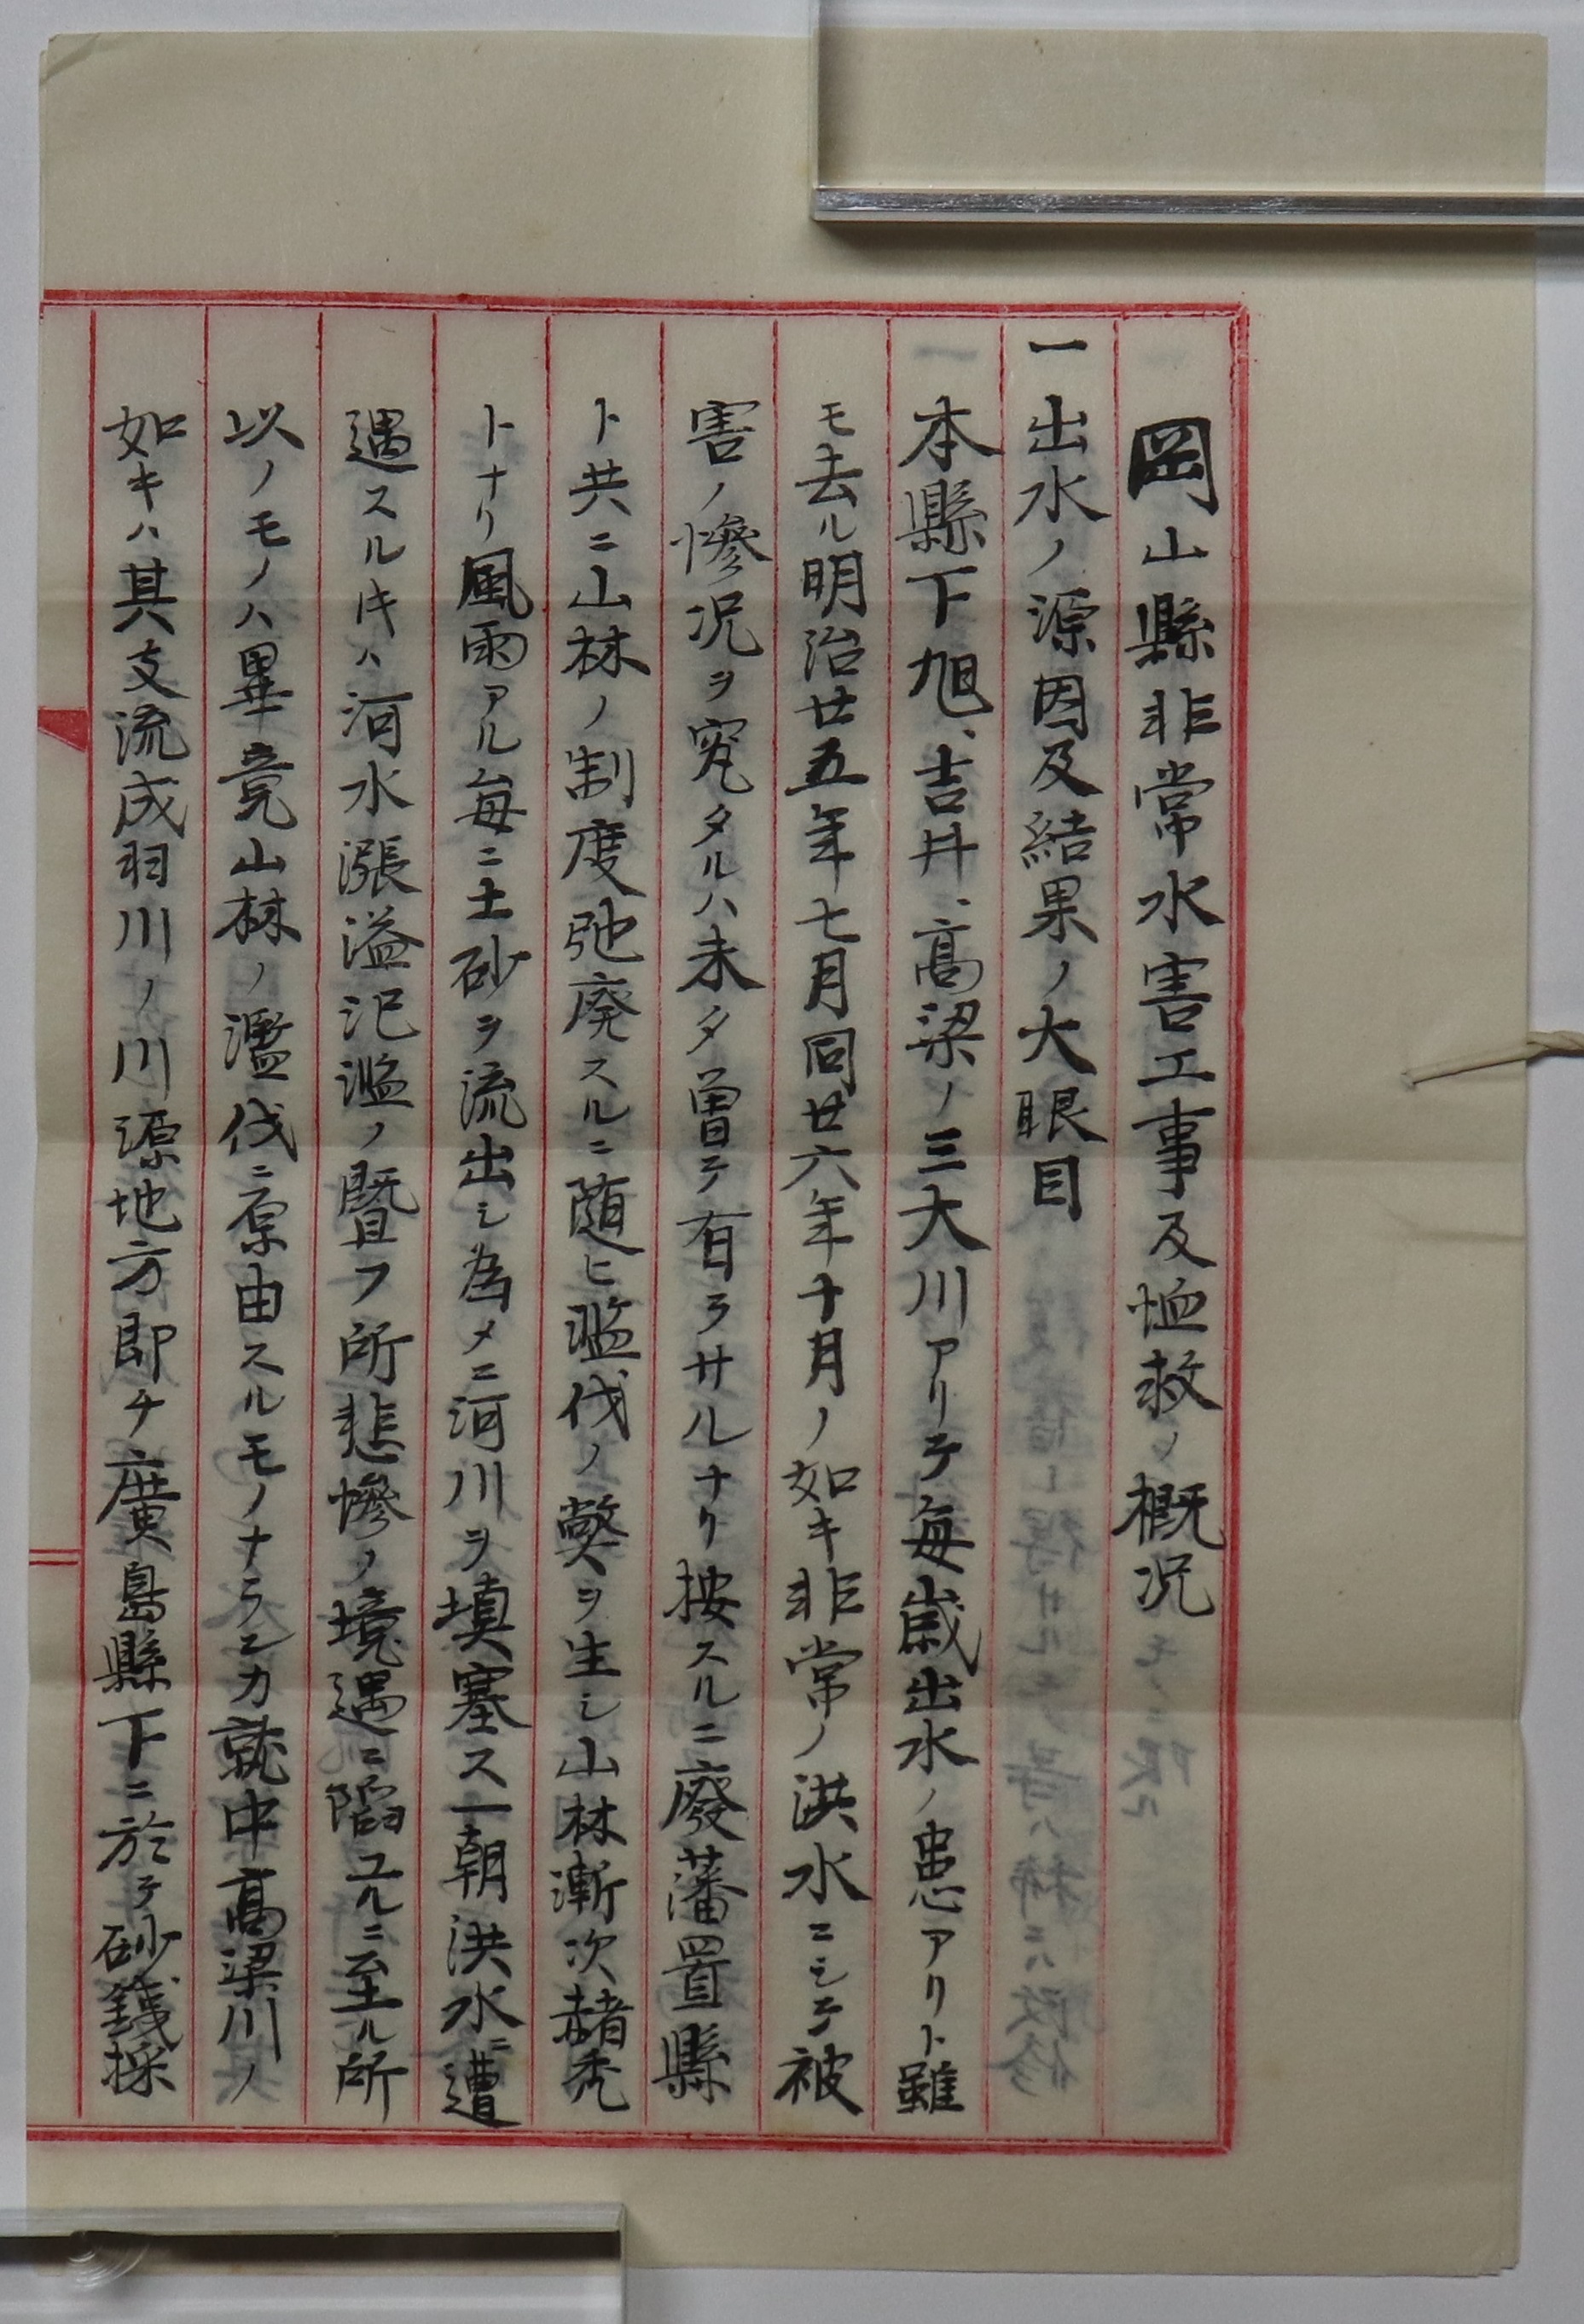 岡山縣非常水害工事及恤救ノ概况
一出水ノ源因及結果ノ大眼目
本縣下旭、吉井、髙梁ノ三大川アリテ毎歳出水ノ患アリト雖
モ去ル明治廿五年七月同廿六年十月ノ如キ非常ノ洪水ニシテ被
害ノ慘况ヲ究タルハ未タ曽テ有ラサルナリ按スルニ廢藩置縣
ト共ニ山林ノ制度弛廃スルニ随ヒ濫伐ノ弊ヲ生シ山林漸次赭禿
トナリ風雨アル毎ニ土砂ヲ流出シ為メニ河川ヲ填塞ス一朝洪水ニ遭
遇スルキハ河水漲溢汜濫ノ暨フ所悲慘ノ境遇ニ陷ユルニ至ル所
以ノモノハ畢竟山林ノ濫伐ニ原由スルモノナランカ就中髙梁川ノ
如キハ其支流成羽川ノ川源地方即チ廣島縣下ニ於テ砂銕採